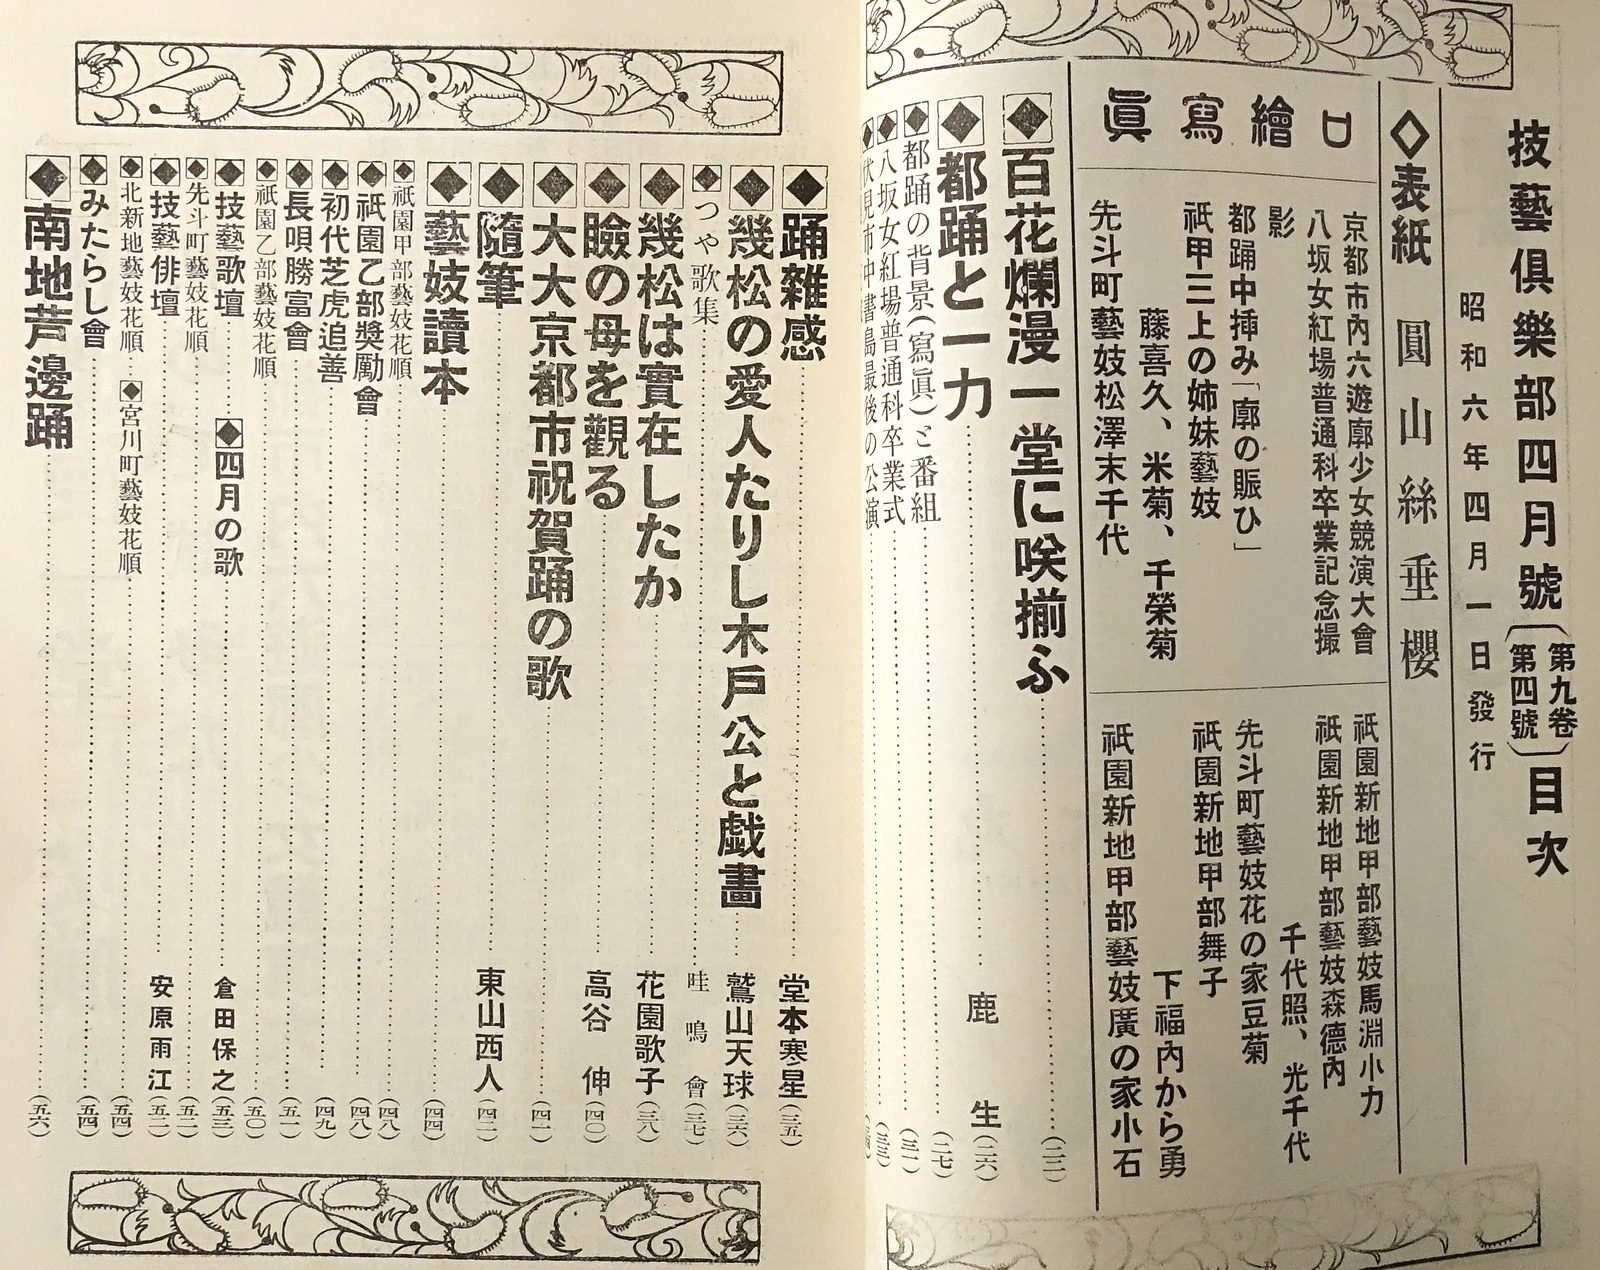 技藝俱樂部四月號(第九卷第四號)目次
昭和六年四月一日發行
◇表紙 圓山絲垂櫻
口繪寫眞
京都市內六遊廓少女競演大會
八坂女紅場普通科卒業記念撮
影
都踊中挿み「廓の賑ひ」
祇甲三上の姉妹藝妓
藤喜久、米菊、千榮菊
先斗町藝妓松澤末千代
祇園新地甲部藝妓馬淵小力
祇園新地甲部藝妓森德內
千代照、光千代
先斗町藝妓花の家豆菊
祇園新地甲部舞子
下福內から勇
祇園新地甲部藝妓廣の家小石
◆百花爛漫一堂に咲揃ふ…(二二)
◆都踊と一力…鹿生(二六)
◆都踊の背景(寫眞)と番組…(二七)
◆八坂女紅場普通科卒業式…(三一)
◆伏見市中書島最後の公演…(三三)
◆踊雜感…堂本寒星(三五)
◆幾松の愛人たりし木戶公と戯畫…鷲山天球(三六)
◆つや歌集…畦鳴會(三七)
◆幾松は實在したか…花園歌子(三八)
◆瞼の母を觀る…高谷伸(四〇)
◆大大京都市祝賀踊の歌…(四一)
◆隨筆…東山西人(四二)
◆藝妓讀本…(四四)
◆祇園甲部藝妓花順…(四八)
◆祇園乙部獎勵會…(四八)
◆初代芝虎追善…(四九)
◆長唄勝富會…(五一)
◆祇園乙部藝妓花順…(五〇)
◆技藝歌壇…◆四月の歌…倉田保之(五三)
◆先斗町藝妓花順…(五二)
◆技藝俳壇…安原雨江(五二)
◆北新地藝妓花順…◆宮川町藝妓花順…(五四)
◆みたらし會…(五四)
◆南地芦邊踊…(五六)